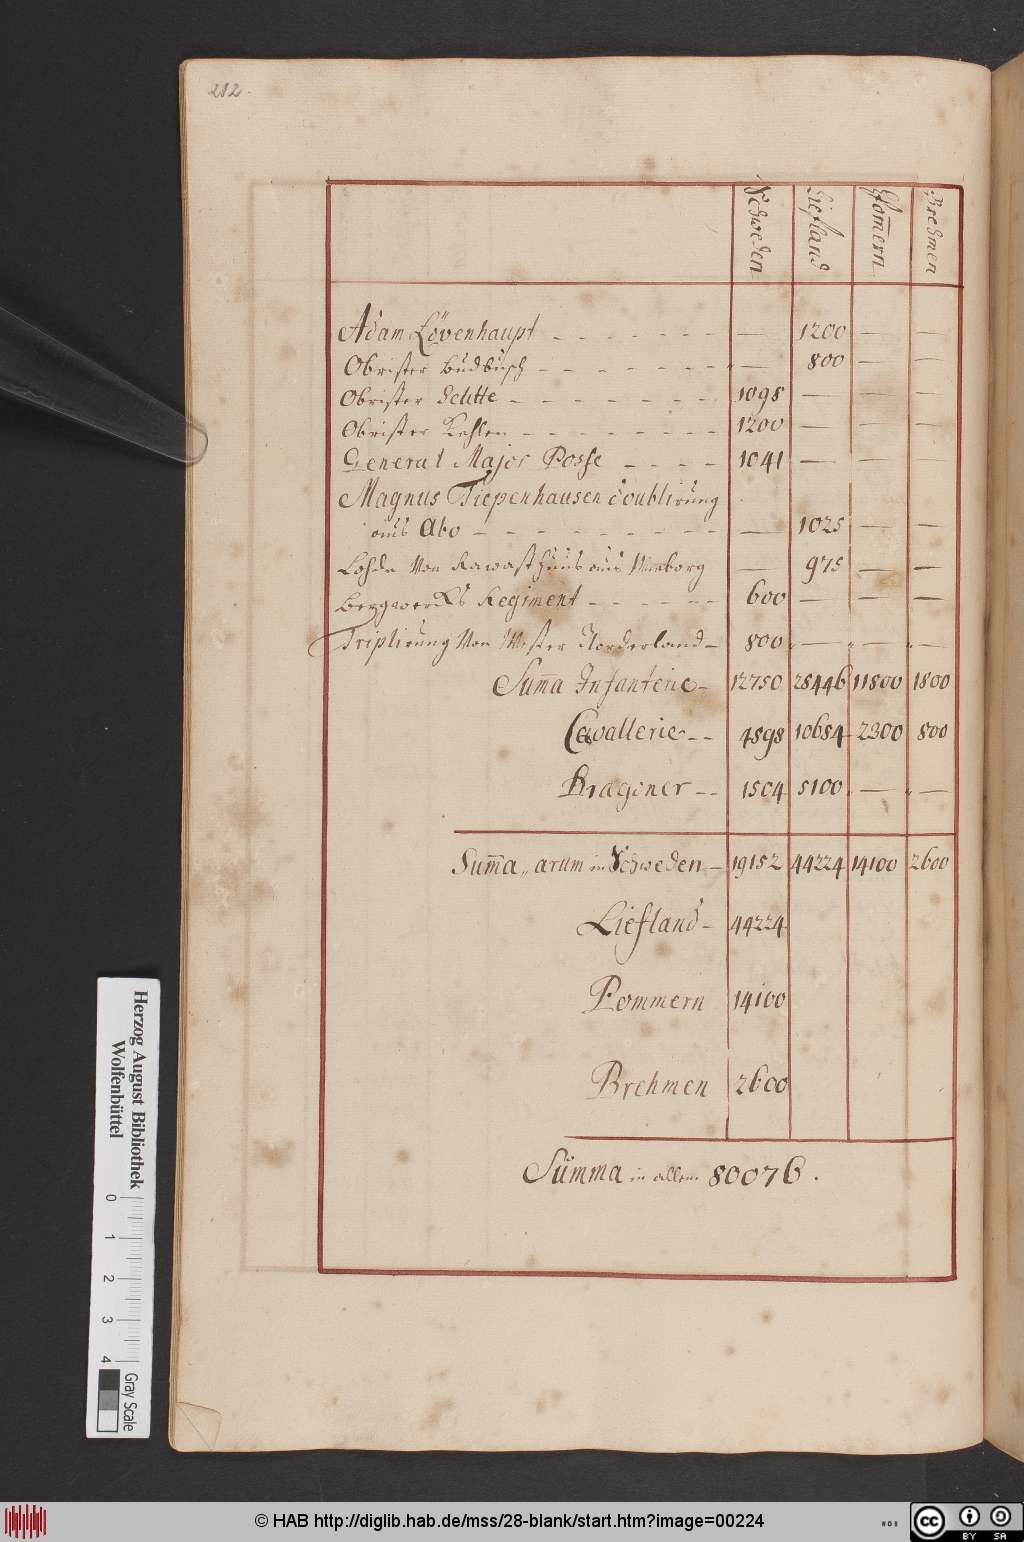 212.
Schweden Liefland Pom̄ern Brehmen
Adam Lövenhaupt - - - - - - - — 1200 — —
Obrister Budbusch - - - - - - - — 800 — —
Obrister Schtte - - - - - - - 1098 — — —
Obrister - - - - - - - 1200 — — —
General Major Posse - - - - 1041 — — —
Magnus Tiepenhausen doublirung
aus Abo - - - - - - - - - — 1025 — —
Lohde Von Kawasthuus aus Wieborg — 975 — —
Bergwercks Regiment - - - - - - 600 — — —
Triplirung Von Wester Norderland - 800 — — —
Sum̄a Infanterie - 12750 28446 11800 1800
Cavallerie - - 4898 10684 2300 800
Dragoner - - 1504 5100 — —
Sum̄a,, arum in Schweden - 19152 44224 14100 2600
Liefland - 44224
Pommern 14100
Brehmen 2600
Summa in allem 80076.
Herzog August Bibliothek
Wolfenbüttel
0 1 2 3 4
Gray Scale
© HAB http://diglib.hab.de/mss/28-blank/start.htm?image=00224
WDB
CC BY SA